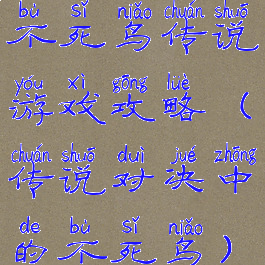 bù sǐ niǎo chuán shuō
不死鸟传说
yóu xì gōng lüè
游戏攻略（
chuán shuō duì jué zhōng
传说对决中
de bù sǐ niǎo
的不死鸟）